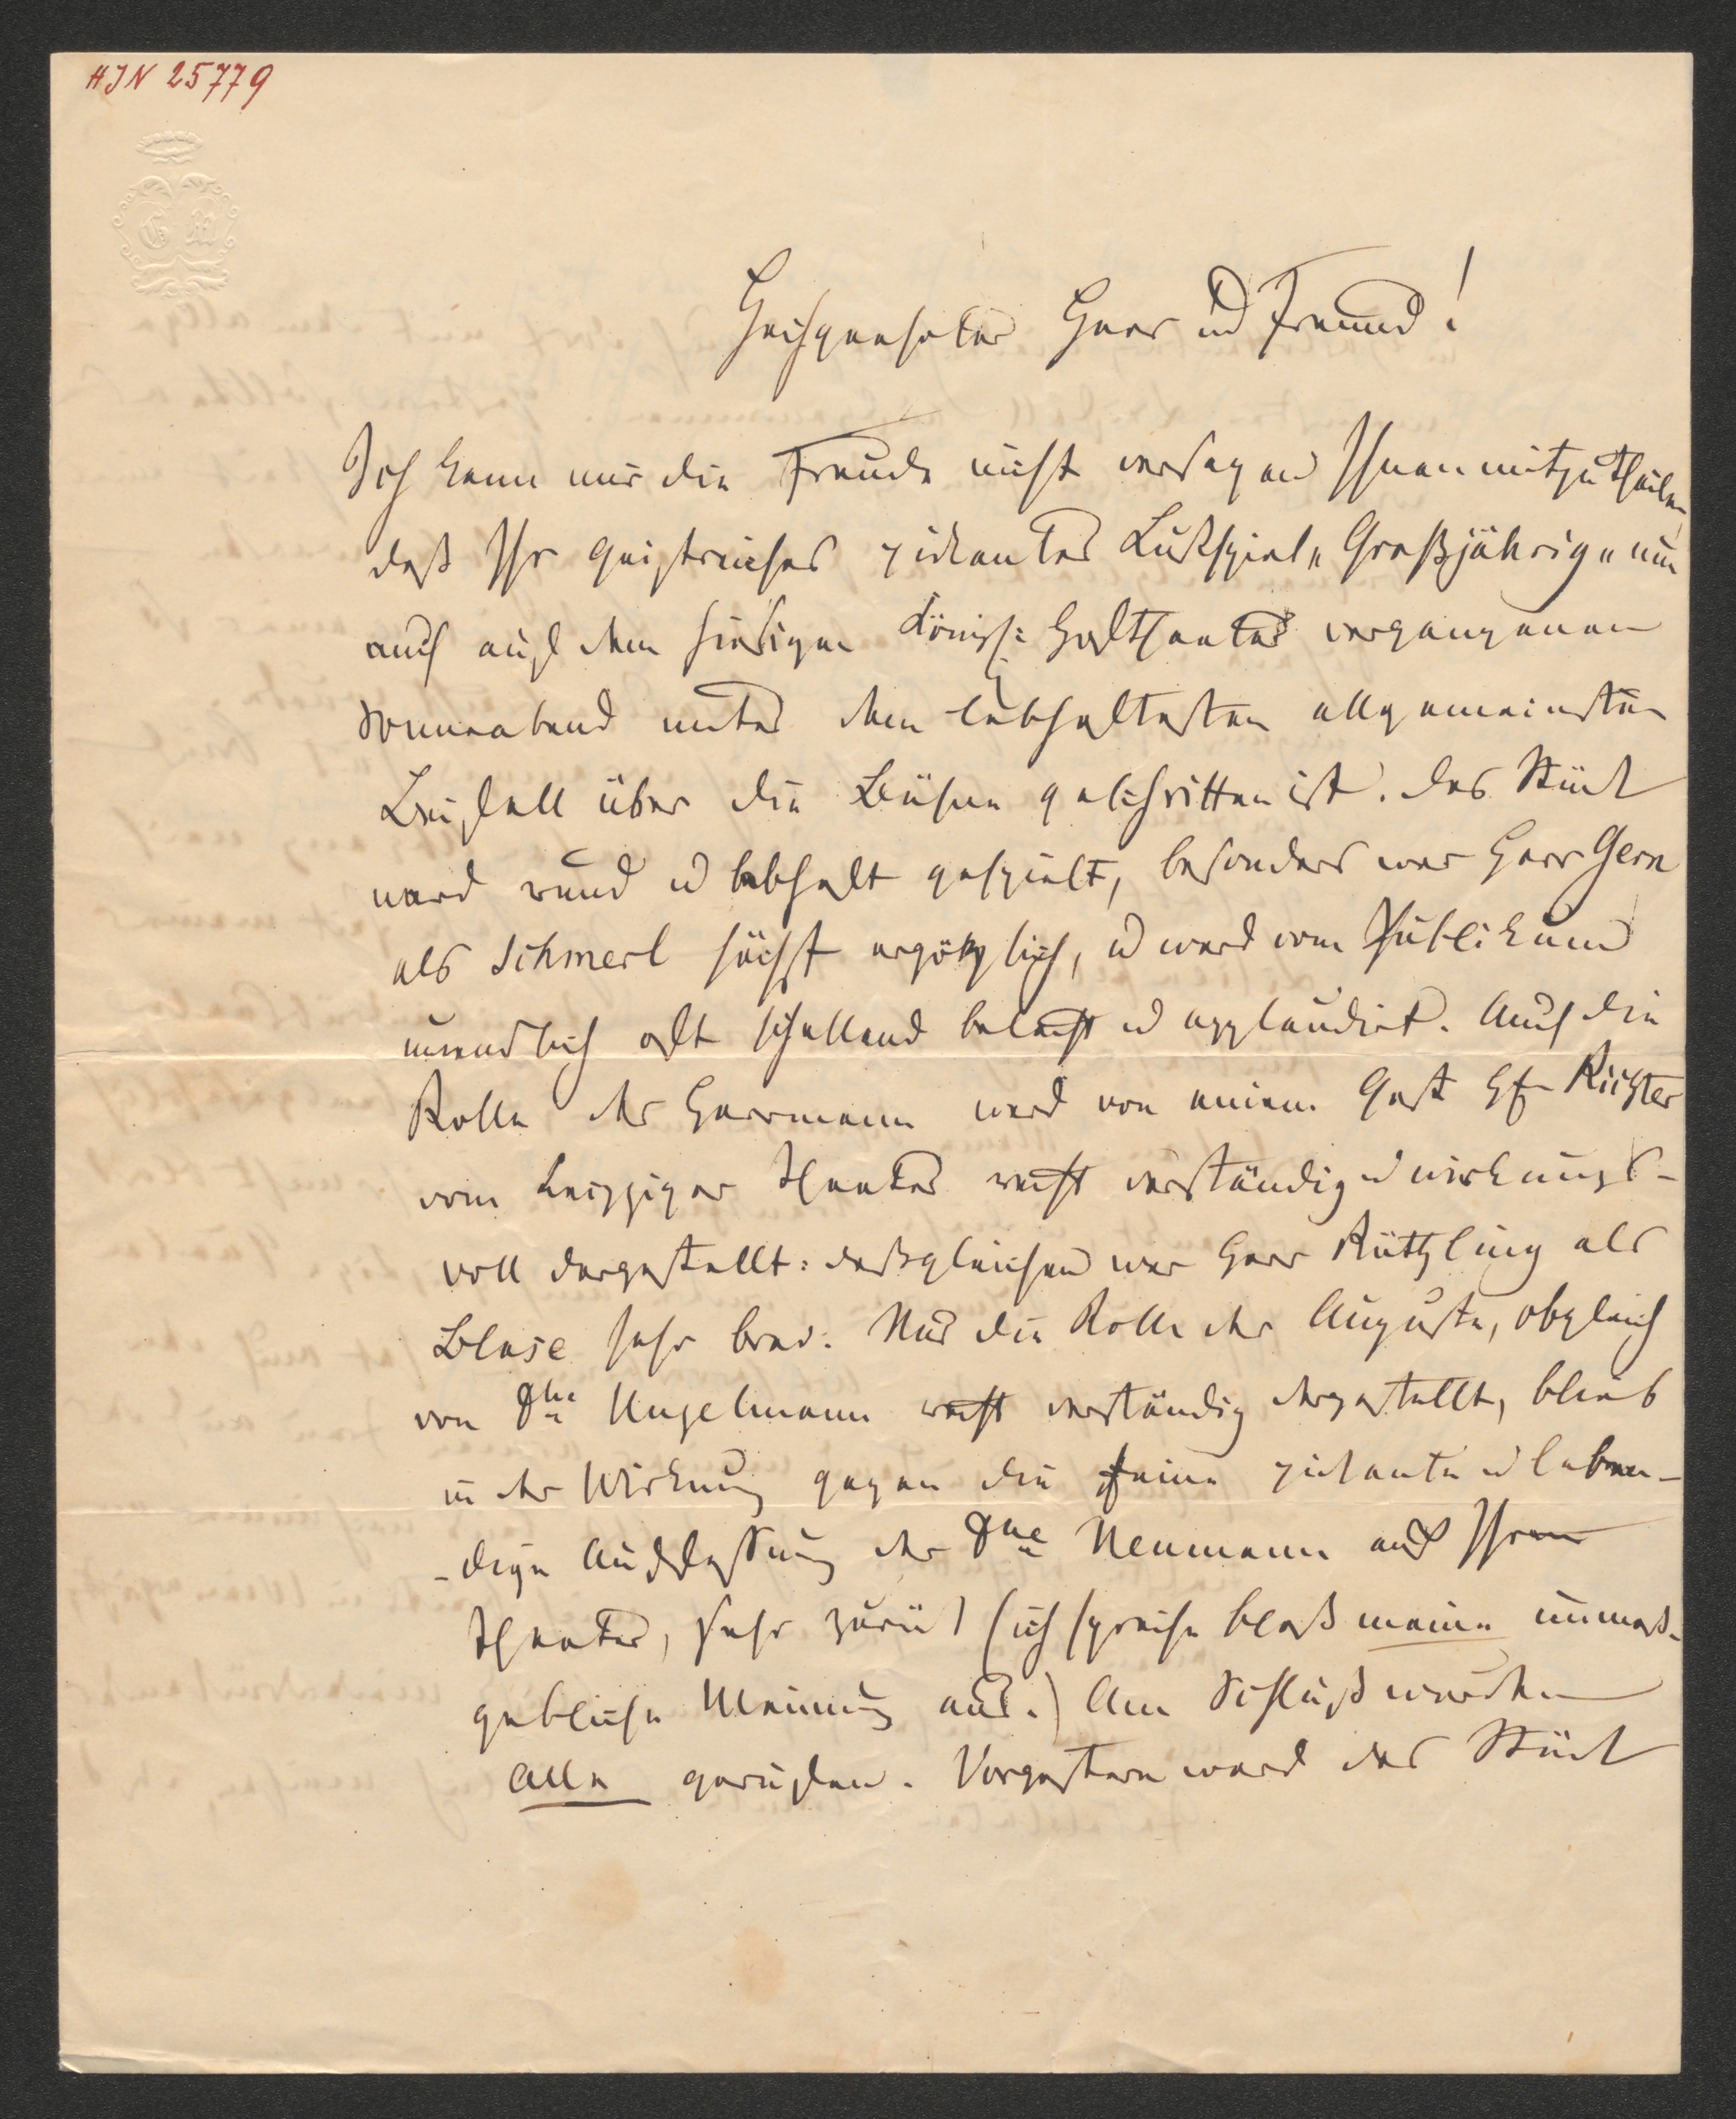 HIN 25779
G M
Hochgeehrter Herr und Freund!
Ich kann mir die Freude nicht versagen Ihnen mitzutheilen,
daß Ihr geistreiches pikantes Lustspiel „Großjährig„ nun
auch auf dem hiesigen Königl: Hoftheater vergangenen
Sonnabend unter dem lebhaftesten allgemeinsten
Beifall über die Bühne geschritten ist. Das Stück
ward rund u lebhaft gespielt, besonders war Herr Gern
als Schmerl höchst ergötzlich, u ward vom Publikum
unendlich oft schallend belacht u applaudirt. Auch die
Rolle des Herrmann ward von einem Gast H Richter
vom Leipziger Theater recht verständig u wirkungs-
voll dargestellt: desgleichen war Herr Rüthling als
Blase sehr brav. Nur die Rolle der Auguste, obgleich
von Dlle Unzelmann recht verständig dargestellt, blieb
in der Wirkung gegen die feine pikante u leben-
-dige Auffassung der Dlle Neumann auf Ihrem
Theater, sehr zurück (ich spreche blos meine unmaß-
gebliche Meinung aus.) Am Schluß wurden
Alle gerufen. Vorgestern ward das Stück